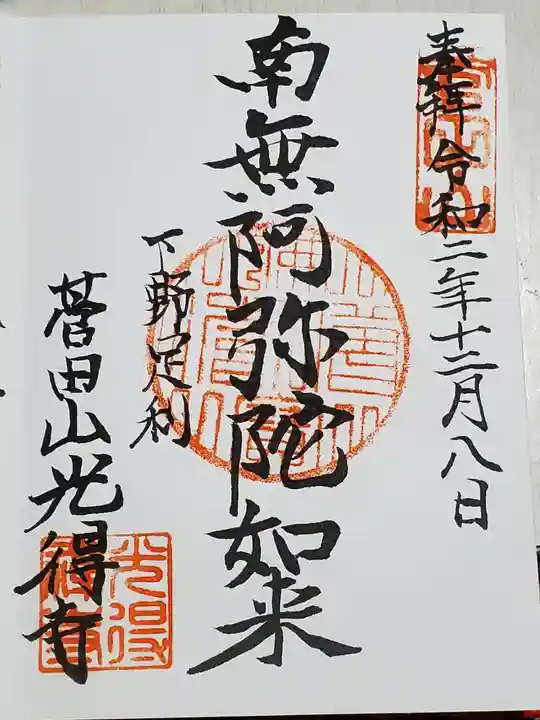 奉拝 令和二年十二月八日
南無阿弥陀如来
下野足利
菅田山光得寺
光得寺